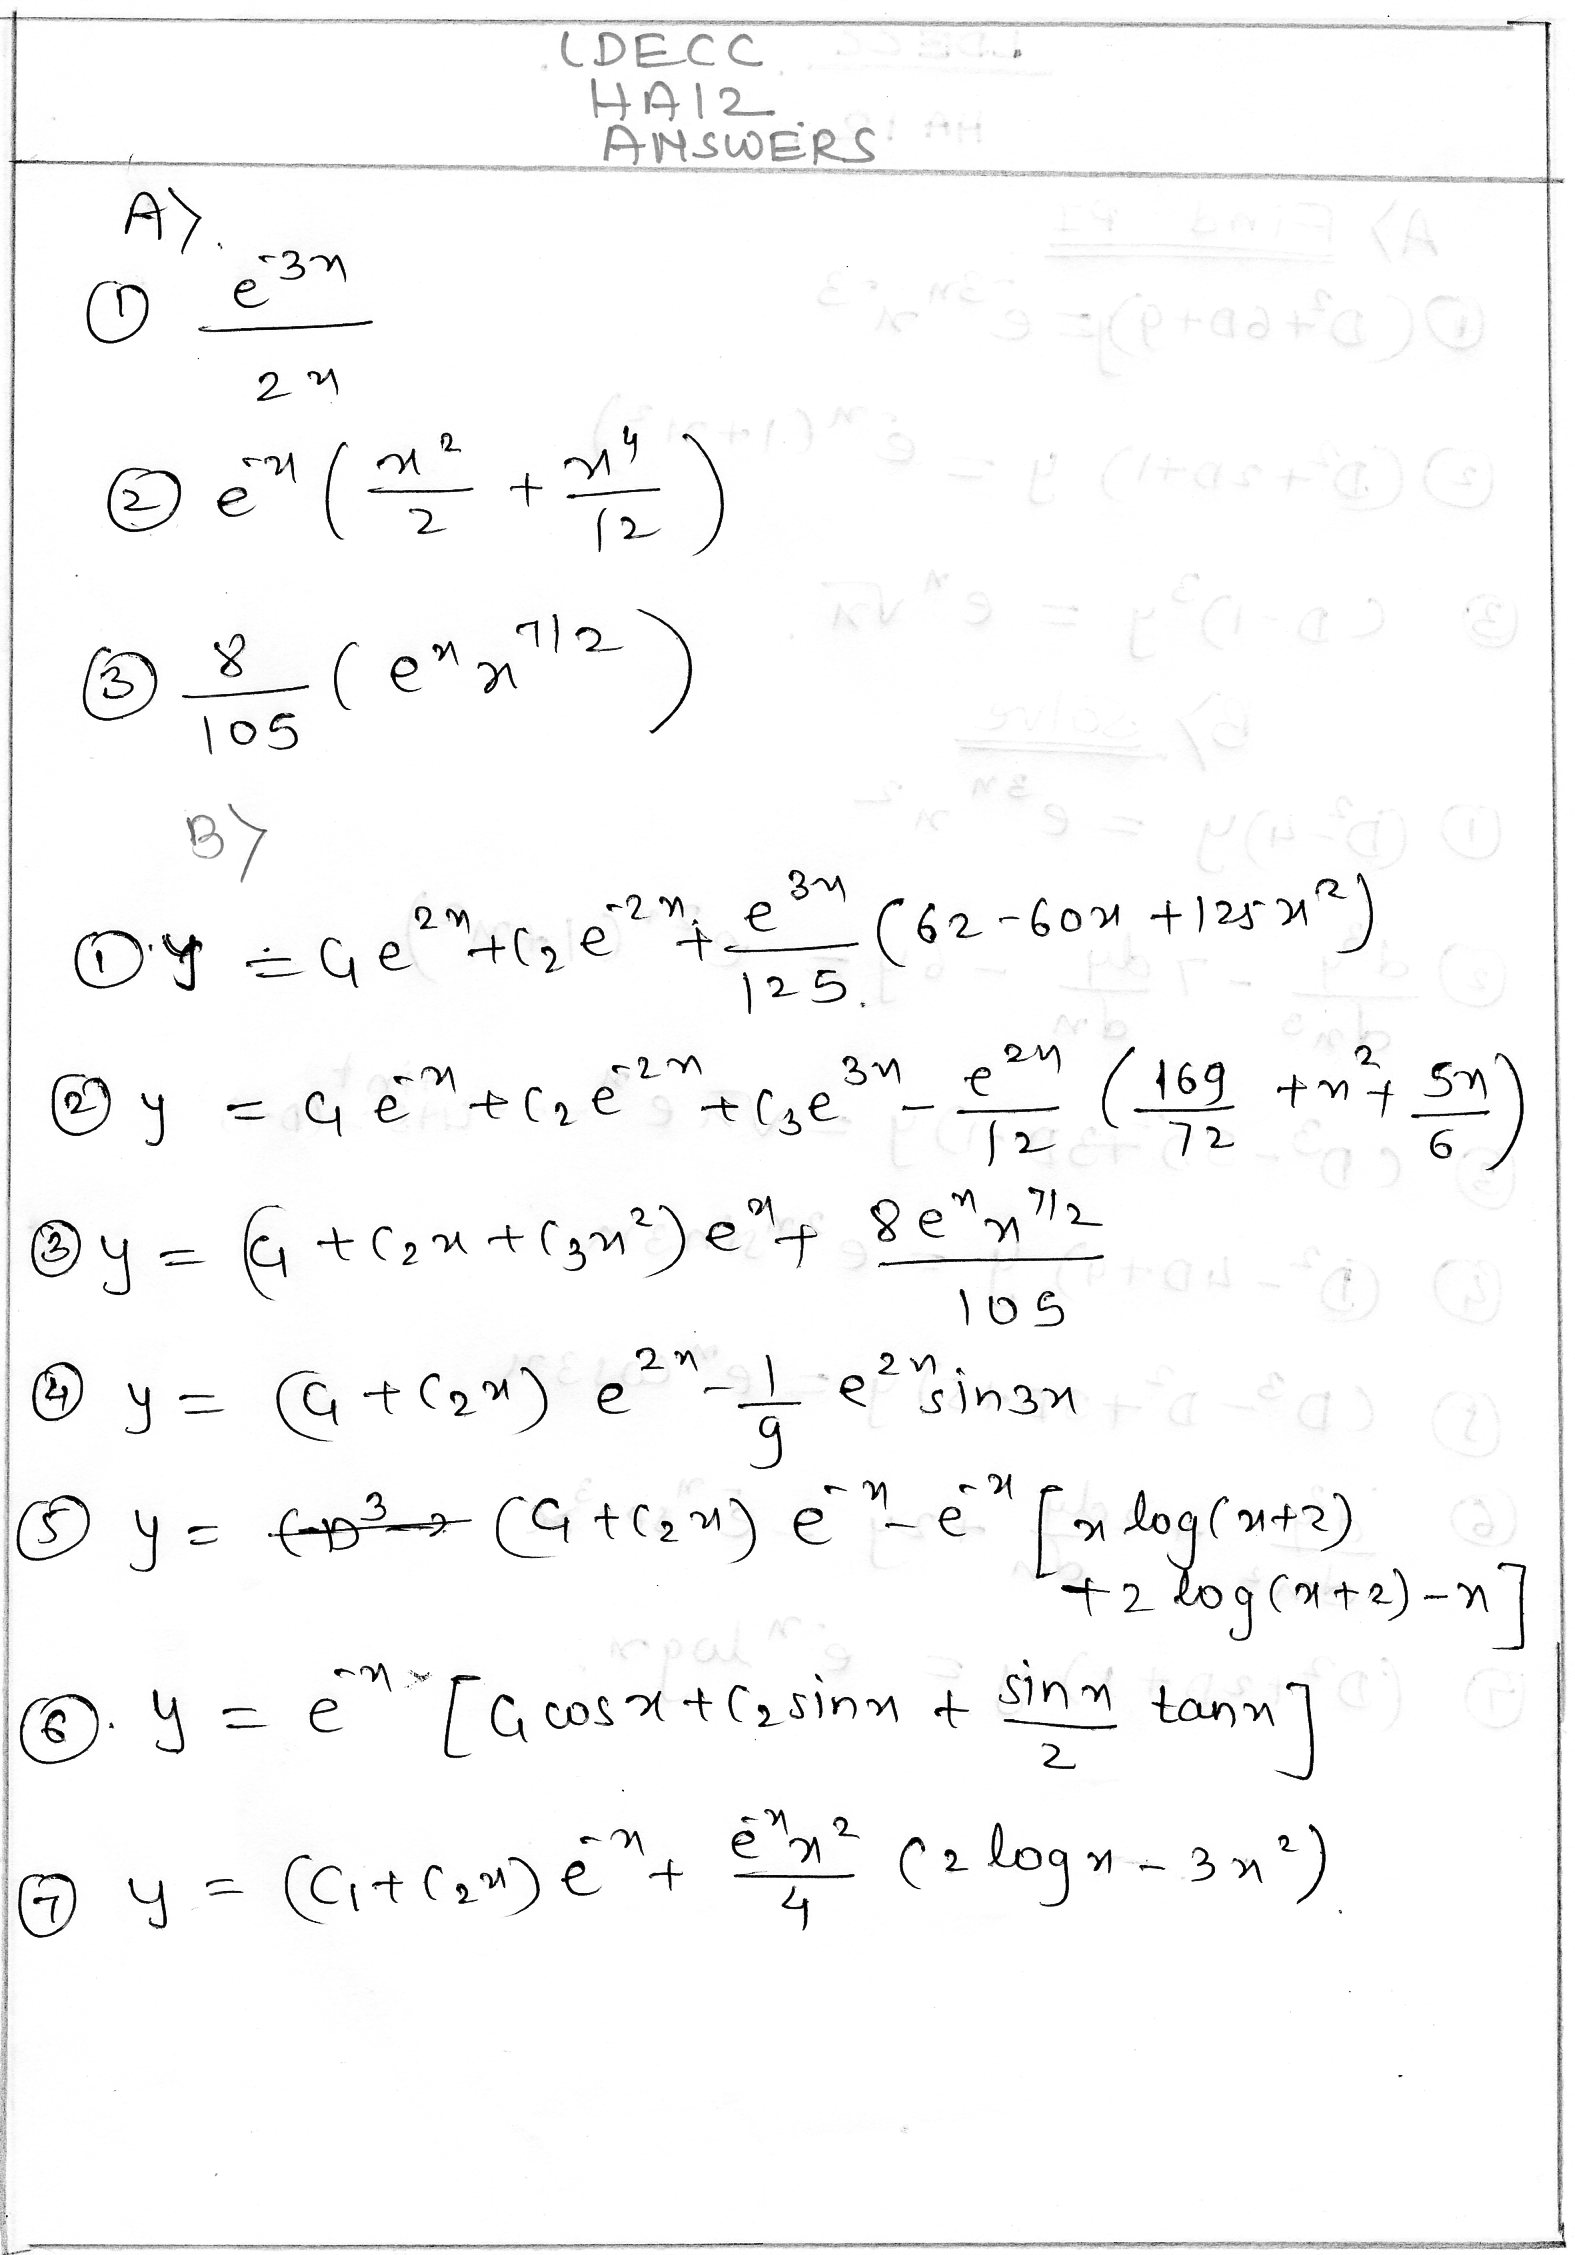 LDECC
HA12
ANSWERS
A>.
① e^-3x / 2x
② e^-x ( x^2/2 + x^4/12 )
③ 8/105 ( e^x x^7/2 )
B>
①. y = C1 e^2x + C2 e^-2x + e^3x/125. (62 - 60x + 125x^2)
② y = C1 e^-x + C2 e^-2x + C3 e^3x - e^2x/12 ( 169/72 + x^2 + 5x/6 )
③ y = (C1 + C2x + C3x^2) e^x + 8e^x x^7/2 / 105
④ y = (C1 + C2x) e^2x - 1/9 e^2x sin3x
⑤ y = (C1 + C2x) e^-x - e^-x [x log(x+2)
+2 log(x+2) - x]
⑥. y = e^-x [C1 cosx + C2 sinx + sinx/2 tanx]
⑦ y = (C1 + C2x) e^-x + e^-x x^2/4 (2 logx - 3x^2).